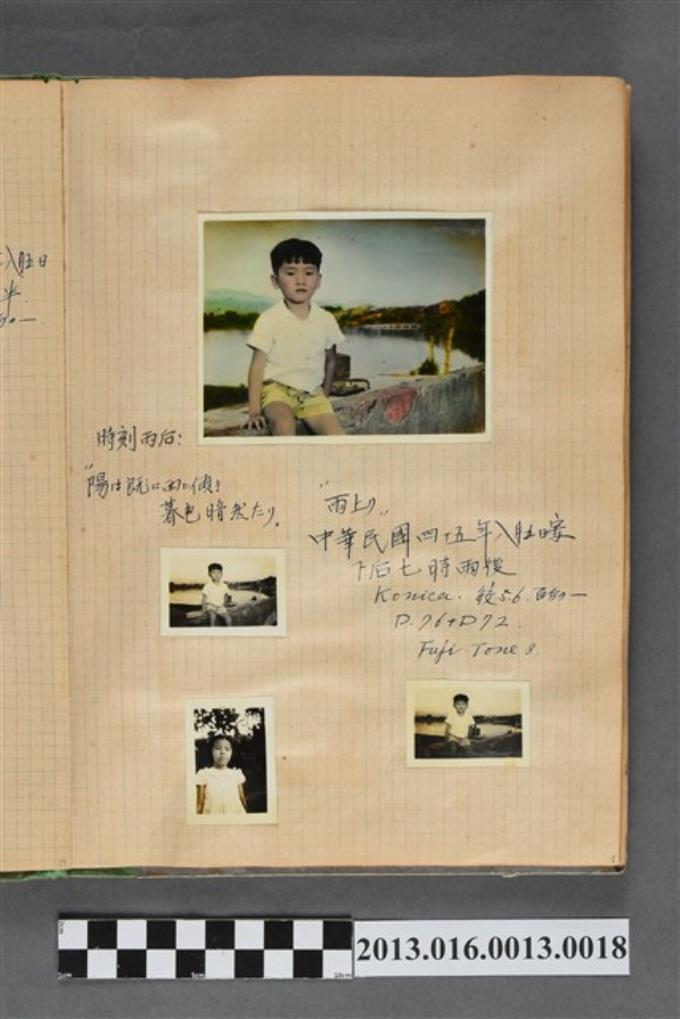 入肚日
半.
時刻雨后:
"陽は既に西に傾き
暮色暗然たり。
"雨上り"
中華民國四十五年八肚日家
下后七時雨後
Konica. 絞5.6. 百分一
D.76+D72.
Fuji Tone 3.
2013.016.0013.0018